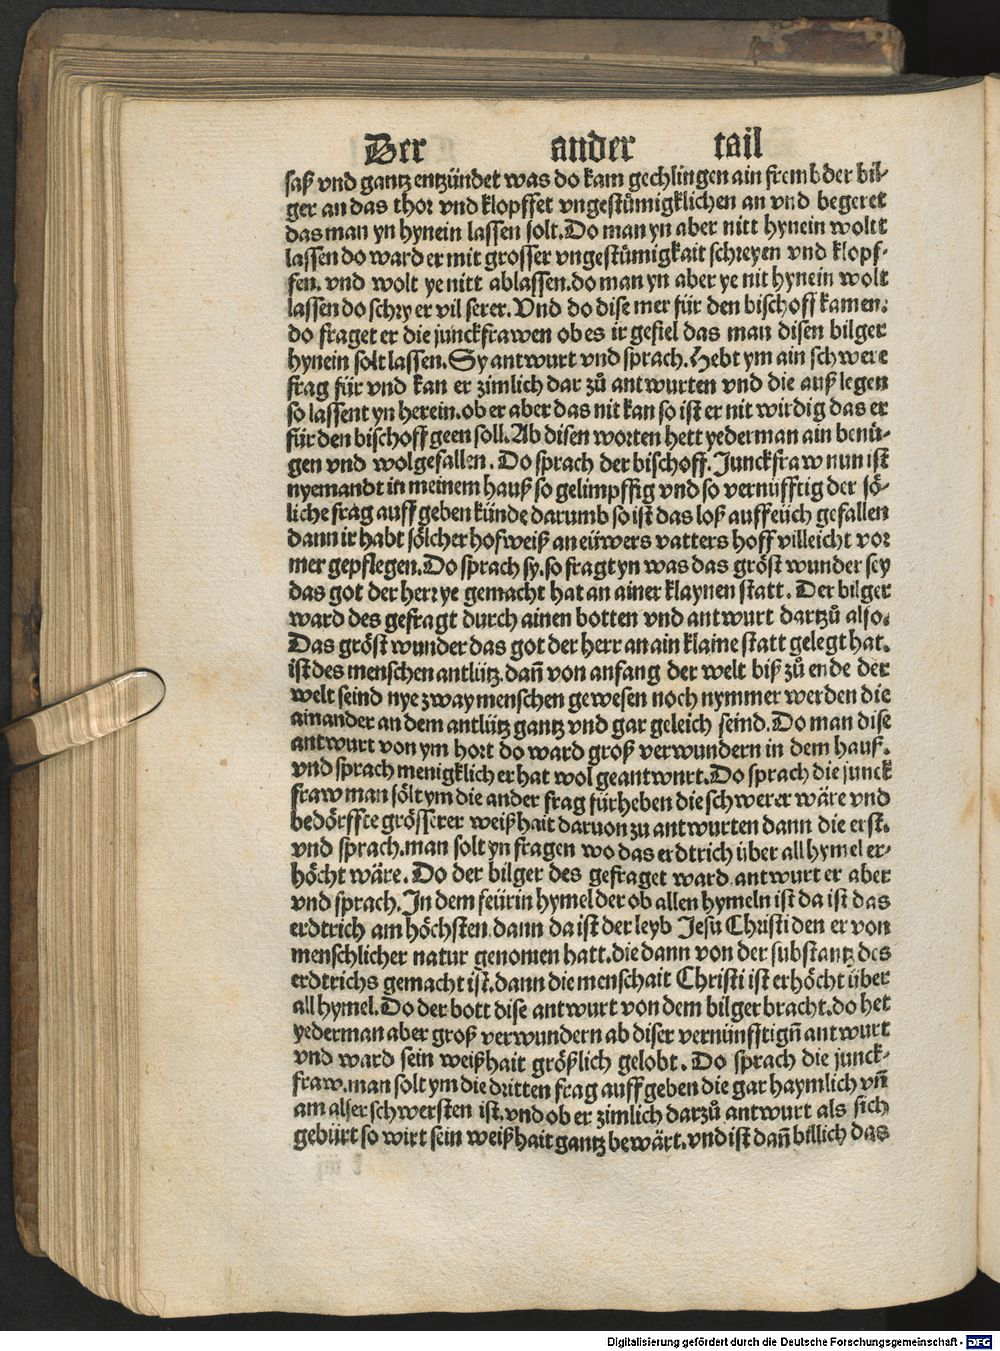 Der ander tail
saß vnd gantz entzündet was do kam gechlingen ain frembder bil-
ger an das thor vnd klopffet vngestůmigklichen an vnd begeret
das man yn hynein lassen solt. Do man yn aber nitt hynein woltt
lassen do ward er mit grosser vngestůmigkait schreyen vnd klopf-
fen. vnd wolt ye nitt ablassen. do man yn aber ye nit hynein wolt
lassen do schry er vil serer. Vnd do dise mer für den bischoff kamen.
do fraget er die junckfrawen ob es ir gefiel das man disen bilger
hynein solt lassen. Sy antwurt vnd sprach. Hebt ym ain schwere
frag für vnd kan er zimlich dar zů antwurten vnd die auß legen
so lassent yn herein. ob er aber das nit kan so ist er nit wirdig das er
für den bischoff geen soll. Ab disen worten hett yederman ain benü-
gen vnd wolgefallen. Do sprach der bischoff. Junckfraw nun ist
nyemandt in meinem hauß so gelimpffig vnd so vernüfftig der sö-
liche frag auff geben künde darumb so ist das loß auff eüch gefallen
dann ir habt sölcher hofweiß an eüwers vatters hoff villeicht vor
mer gepflegen. Do sprach sy. so fragt yn was das gröst wunder sey
das got der herr ye gemacht hat an ainer klaynen statt. Der bilger
ward des gefragt durch ainen botten vnd antwurt dartzů also.
Das gröst wunder das got der herr an ain klaine statt gelegt hat.
ist des menschen antlütz. dañ von anfang der welt biß zů ende der
welt seind nye zway menschen gewesen noch nymmer werden die
ainander an dem antlütz gantz vnd gar geleich seind. Do man dise
antwurt von ym hort do ward groß verwundern in dem hauß.
vnd sprach menigklich er hat wol geantwurt. Do sprach die junck
fraw man sölt ym die ander frag fürheben die schwerer wäre vnd
bedörffte grösserer weißhait daruon zu antwurten dann die erst.
vnd sprach. man solt yn fragen wo das erdtrich über all hymel er-
höcht wäre. Do der bilger des gefraget ward antwurt er aber
vnd sprach. In dem feürin hymel der ob allen hymeln ist da ist das
erdtrich am höchsten. dann da ist der leyb Jesu Christi den er von
menschlicher natur genomen hatt. die dann von der substantz des
erdtrichs gemacht ist. dann die menschait Christi ist erhöcht über
all hymel. Do der bott dise antwurt von dem bilger bracht. do het
yederman aber groß verwundern ab diser vernünfftigñ antwurt
vnd ward sein weißhait größlich gelobt. Do sprach die junck-
fraw. man solt ym die dritten frag auff geben die gar haymlich vñ
am aller schwersten ist. vnd ob er zimlich darzů antwurt als sich
gebürt so wirt sein weißhait gantz bewärt. vnd ist dañ billich das
Digitalisierung gefördert durch die Deutsche Forschungsgemeinschaft - DFG